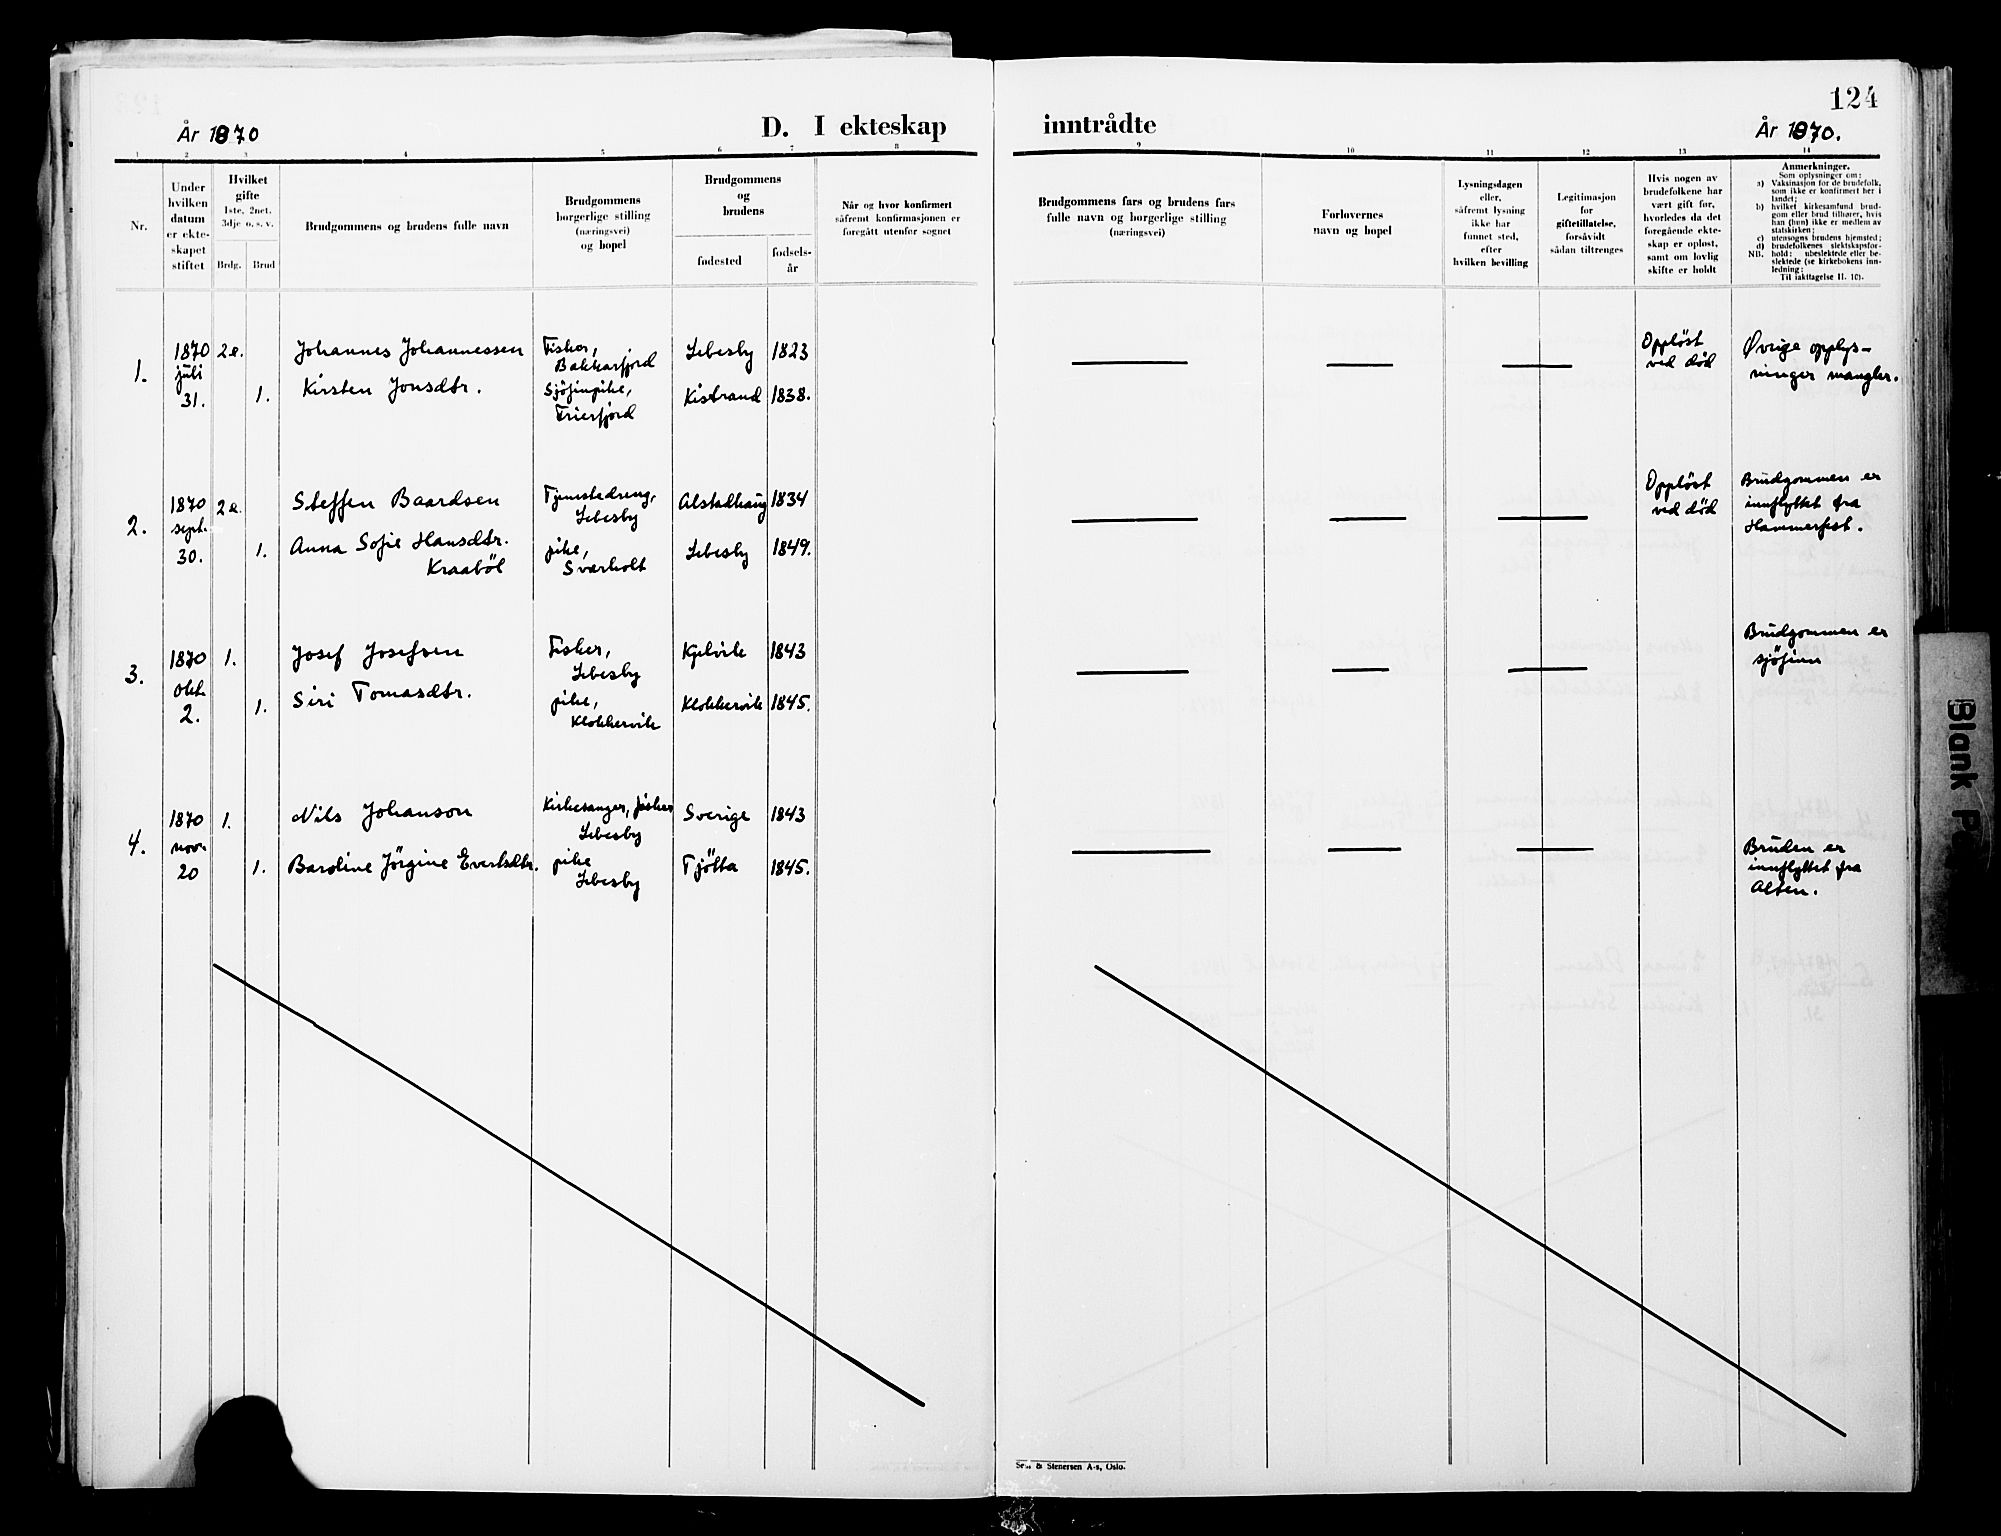 124
År 1870
D. I ekteskap
inntrådte
År 1870.
1 2 3 4 5 6 7 8
9 10 11 12 13 14
Nr.
Under
hvilken
datum
er ekte-
skapet
stiftet
Hvilket
gifte
1ste, 2net.
3dje o. s. v.
Brdg. Brud
Brudgommens og brudens fulle navn
Brudgommens
borgerlige stilling
(næringsvei)
og bopel
Brudgommens
og
brudens
fødested
fødsels-
år
Når og hvor konfirmert
såfremt konfirmasjonen er
foregått utenfor sognet
Brudgommens fars og brudens fars
fulle navn og borgerlige stilling
(næringsvei)
Forlovernes
navn og bopel
Lysningsdagen
eller,
såfremt lysning
ikke har
funnet sted,
efter
hvilken bevilling
Legitimasjon
for
giftetillatelse,
forsåvidt
sådan tiltrenges
Hvis nogen av
brudefolkene har
vært gift før,
hvorledes da det
foregående ekte-
skap er opløst,
samt om lovlig
skifte er holdt
Anmerkninger.
Som oplysninger om:
a) Vaksinasjon for de brudefolk,
som ikke er konfirmert her i
landet;
b) hvilket kirkesamfund brud-
gom eller brud tilhører, hvis
han (hun) ikke er medlem av
statskirken;
c) utensogns brudens hjemsted;
d) brudefolkenes slektskapsfor-
NB. hold: ubeslektede eller be-
slektede (se kirkebokens inn-
ledning:
Til iakttagelse II. 10).
1.
1870
juli
31.
2e.
1.
Johannes Johannessen
Kirsten Jonsdtr.
Fisker,
Bakkarfjord
Sjöfinpike,
Frierfjord
Lebesby 1823
Kistrand 1838.
Oppløst
ved död
Øvrige opplys-
ninger mangler.
2.
1870
sept.
30.
2e.
1.
Steffen Baardsen
Anna Sofie Hansdtr.
Kraaböl
Tjenestedreng,
Lebesby
pike,
Sværholt
Alstadhaug 1834
Lebesby 1849.
Oppløst
ved död
Brudgommen er
innflyttet fra
Hammerfest.
3.
1870
okt.
2.
1.
1.
Josef Josefsen
Siri Tomasdtr.
Fisker,
Lebesby
pike,
Klokkervik
Kjelvik 1843
Klokkervik 1845.
Brudgommen er
sjöfinn
4.
1870
nov.
20
1.
1.
Nils Johanson
Baroline Jörgine Evertsdtr.
Kirkesanger, fisker
Lebesby
pike
Lebesby
Sverige 1843
Tjötta 1845.
Bruden er
innflyttet fra
Alten.
& Stenersen A-s, Oslo.
Blank